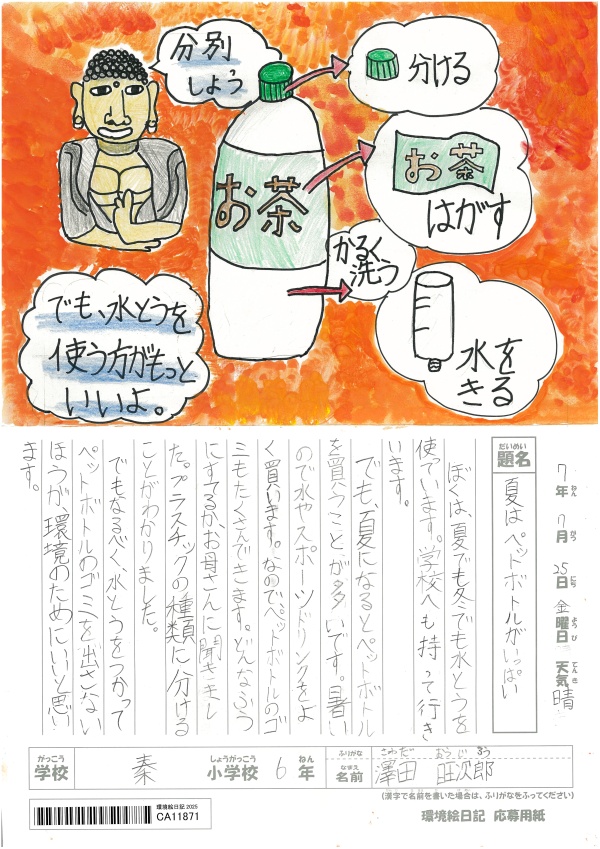 分別
しよう
分ける
お茶
はがす
お茶
かるく
洗う
水を
きる
でも、水とうを
使う方がもっと
いいよ。
7年7月25日金曜日 天気 晴
ねん がつ にち ようび てんき
だいめい
題名
夏はペットボトルがいっぱい
ぼくは、夏でも冬でも水とうを
使っています。学校へも持って行き
います。
でも、夏になるとペットボトル
を買うことが多いです。暑い
ので水やスポーツドリンクをよ
く買います。なのでペットボトルのゴ
ミもたくさんでてきます。どんなふう
にすてるか、お母さんに聞きまし
た。プラスチックの種類に分ける
ことがわかりました。
でもなるべく、水とうをつかって
ペットボトルのゴミを出さない
ほうが、環境のためにいいと思い
ます。
がっこう しょうがっこう ねん
学校 秦 小学校 6年
ふりがな さわだ おうじろう
なまえ
名前 澤田 旺次郎
(漢字で名前を書いた場合は、ふりがなをふってください)
環境絵日記 2025
CA11871
環境絵日記 応募用紙